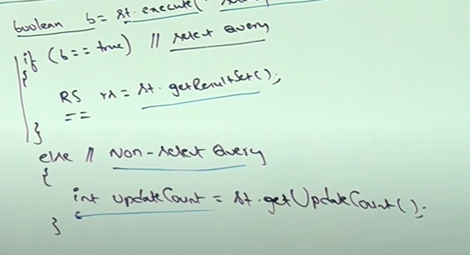 boolean b = st.execute(
if (b == true) // select Query
{
RS rs = st.getResultSet();
==
}
else // Non-select Query
{
int updateCount = st.getUpdateCount();
}